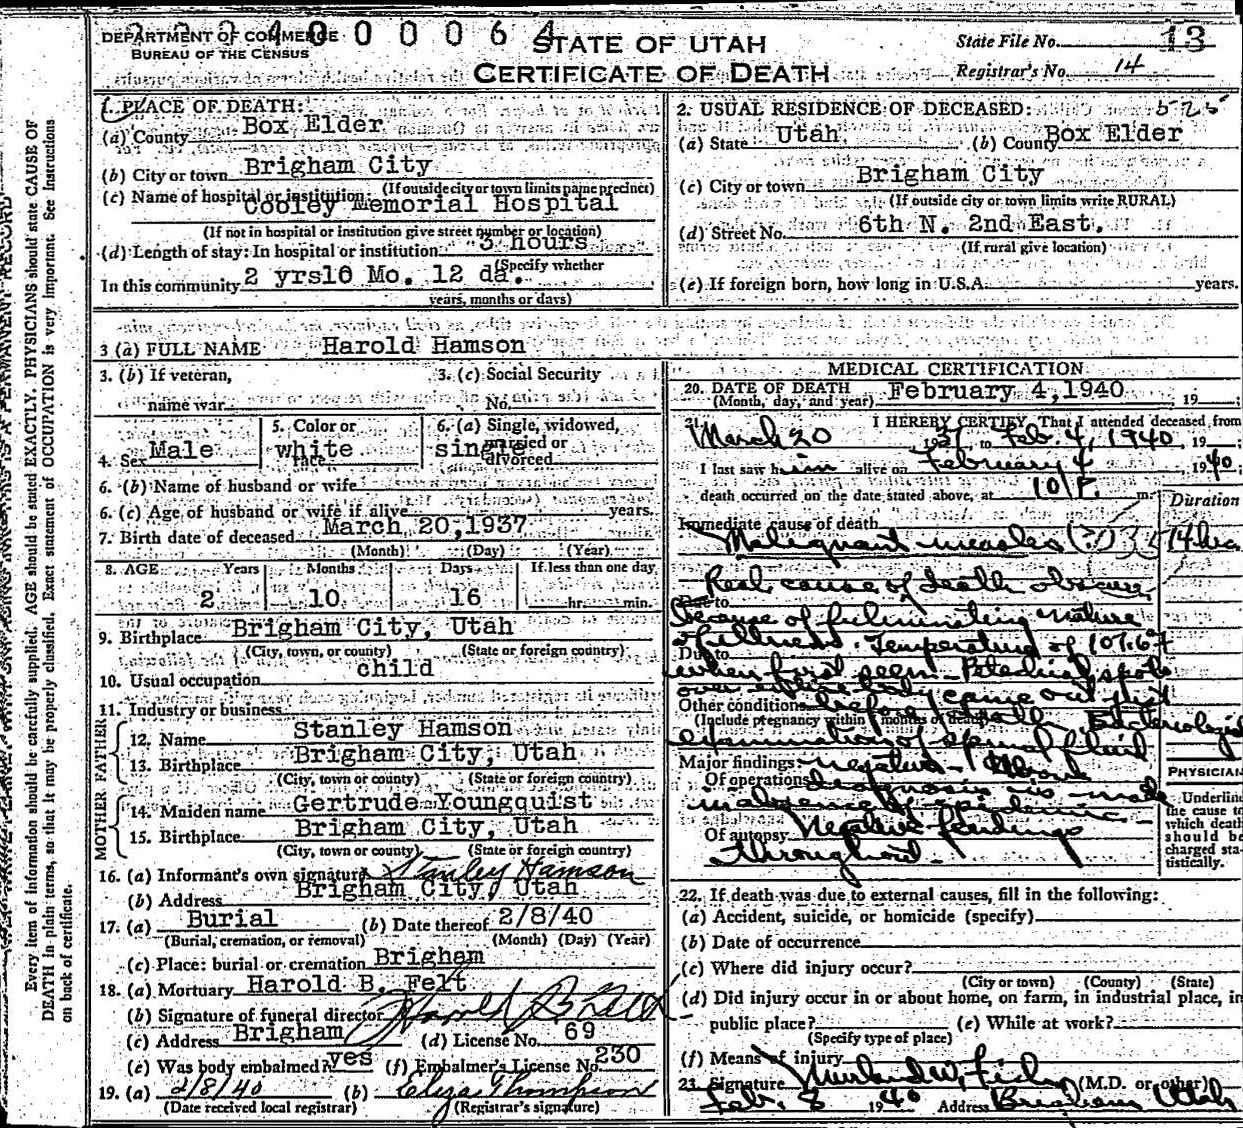 2 0 2 4 0 0 0 0 6 4
DEPARTMENT OF COMMERCE
BUREAU OF THE CENSUS
STATE OF UTAH
CERTIFICATE OF DEATH
State File No. 13
Registrar's No. 14
1. PLACE OF DEATH:
(a) County Box Elder
(b) City or town Brigham City
(If outside city or town limits name precinct)
(c) Name of hospital or institution:
Cooley Memorial Hospital
(If not in hospital or institution give street number or location)
(d) Length of stay: In hospital or institution 3 hours
(Specify whether
In this community 2 yrs10 Mo. 12 da.
years, months or days)
2. USUAL RESIDENCE OF DECEASED: 525
(a) State Utah (b) County Box Elder
(c) City or town Brigham City
(If outside city or town limits write RURAL)
(d) Street No. 6th N. 2nd East.
(If rural give location)
(e) If foreign born, how long in U.S.A. years.
3 (a) FULL NAME Harold Hamson
3. (b) If veteran, 3. (c) Social Security
name war No.
4. Sex Male 5. Color or race white 6. (a) Single, widowed, married or divorced single
6. (b) Name of husband or wife
6. (c) Age of husband or wife if alive years.
7. Birth date of deceased March 20,1937
(Month) (Day) (Year)
8. AGE Years Months Days If less than one day
2 10 16 hr. min.
9. Birthplace Brigham City, Utah
(City, town, or county) (State or foreign country)
10. Usual occupation child
11. Industry or business
FATHER
12. Name Stanley Hamson
13. Birthplace Brigham City, Utah
(City, town or county) (State or foreign country)
MOTHER
14. Maiden name Gertrude Youngquist
15. Birthplace Brigham City, Utah
(City, town or county) (State or foreign country)
16. (a) Informant's own signature Stanley Hamson
(b) Address Brigham City, Utah
17. (a) Burial (b) Date thereof 2/8/40
(Burial, cremation, or removal) (Month) (Day) (Year)
(c) Place: burial or cremation Brigham
18. (a) Mortuary Harold B. Felt
(b) Signature of funeral director Harold B Felt
(c) Address Brigham (d) License No. 69
(e) Was body embalmed? yes (f) Embalmer's License No. 230
19. (a) 2/8/40 (b) Eliza Thompson
(Date received local registrar) (Registrar's signature)
MEDICAL CERTIFICATION
20. DATE OF DEATH February 4,1940 , 19 ;
(Month, day, and year)
21. I HEREBY CERTIFY, That I attended deceased from
March 20 1937 to Feb. 4, 1940, 19 ;
I last saw him alive on February 4, 1940;
death occurred on the date stated above, at 10 P. m.
Duration
Immediate cause of death
Malignant measles (?) 035 14 hrs
Real cause of death obscure
Due to
because of fulminating nature
of illness. Temperature of 107.6°
Due to
when first seen. Petechial spots
over entire body came out just
Other conditions before death. Bacteriologic
(Include pregnancy within months of death)
examination of spinal fluid
Major findings: negative. Above
Of operations diagnosis is made
in absence of epidemic.
Of autopsy Negative findings
throughout.
PHYSICIAN
Underline
the cause to
which death
should be
charged sta-
tistically.
22. If death was due to external causes, fill in the following:
(a) Accident, suicide, or homicide (specify)
(b) Date of occurrence
(c) Where did injury occur?
(City or town) (County) (State)
(d) Did injury occur in or about home, on farm, in industrial place, in
public place? (e) While at work?
(Specify type of place)
(f) Means of injury
23. Signature W. Fish (M.D. or other)
Feb. 8 1940 Address Brigham Utah
Every item of information should be carefully supplied. AGE should be stated EXACTLY. PHYSICIANS should state CAUSE OF
DEATH in plain terms, so that it may be properly classified. Exact statement of OCCUPATION is very important. See instructions
on back of certificate.